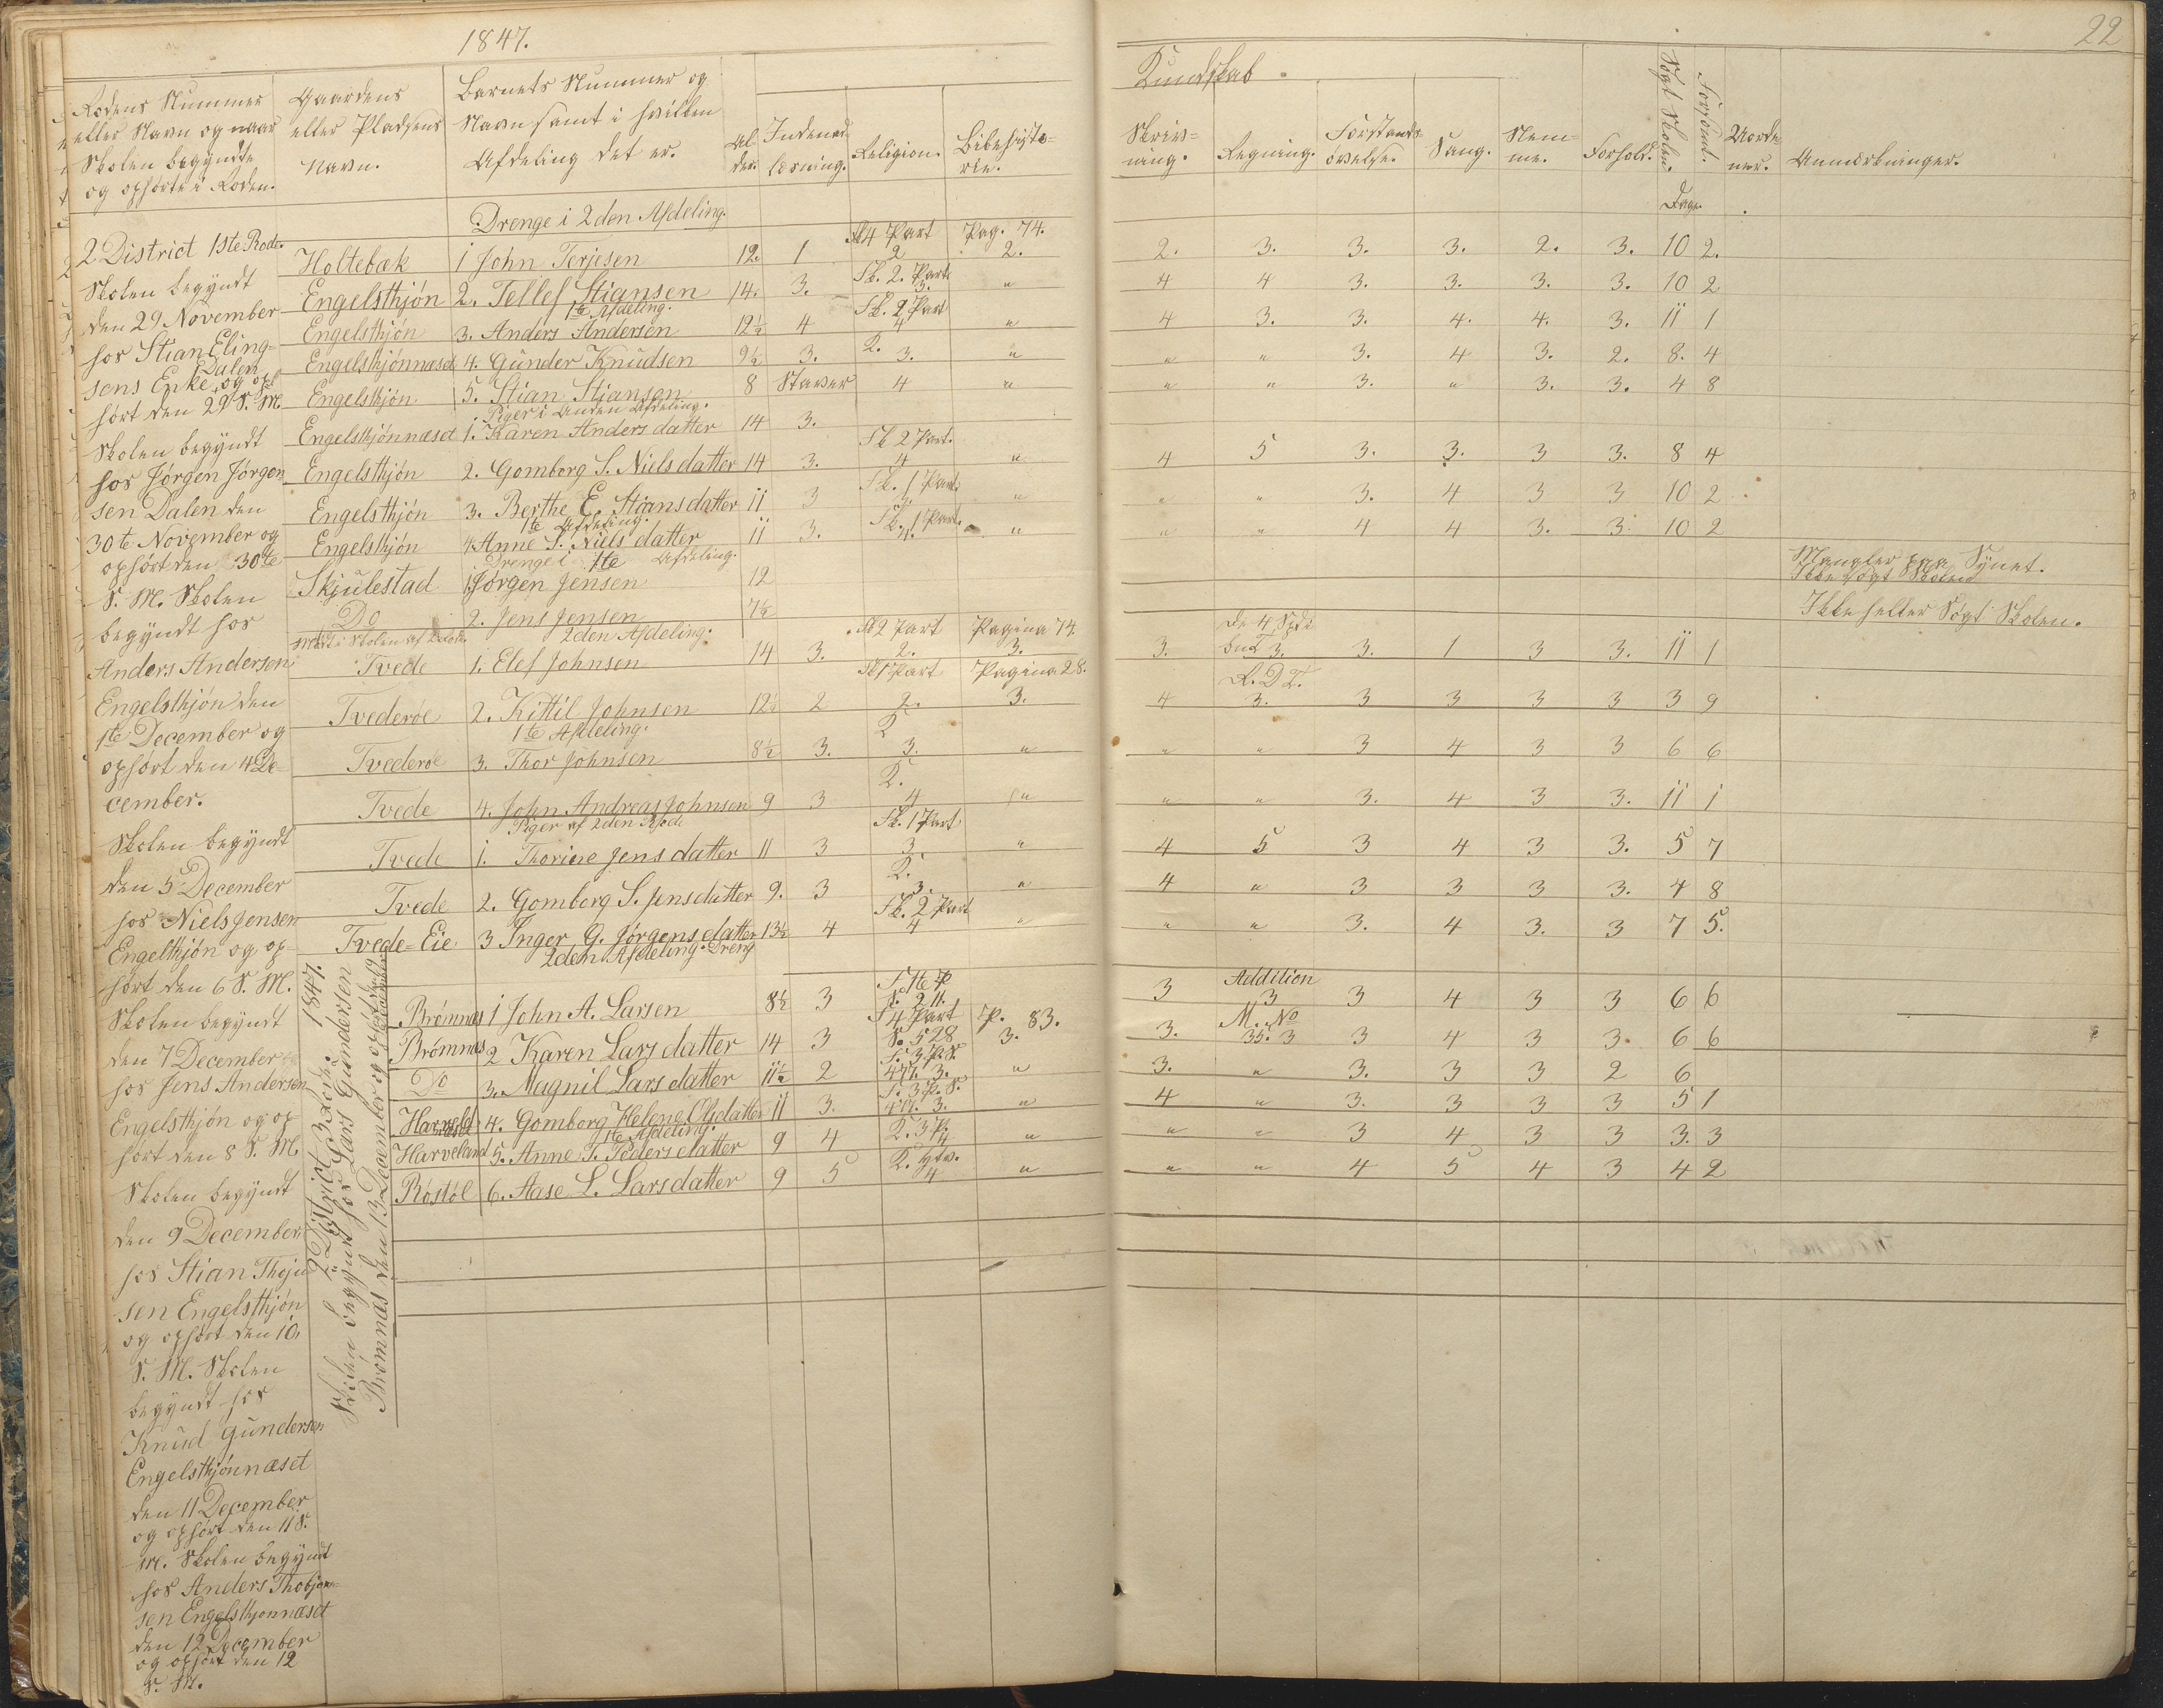 1847.
22
Rodens Nummer
eller Navn og naar
Skolen begyndte
og ophørte i Roden.
Gaardens
eller Pladsens
Navn.
Barnets Nummer og
Navn samt i hvilken
Afdeling det er.
Al-
der.
Indenad-
læsning.
Religion.
Bibelhisto-
rie.
Kundskab.
Skriv-
ning.
Regning.
Forstands-
øvelse.
Sang.
Nem-
me.
Forhold.
Søgt Skolen.
Forsømt.
Uorde-
ner.
Anmærkninger.
Dage.
2 District 1ste Rode.
Skolen begyndt
den 29 November
hos Stian Eling-
sens Enke Dalen og op-
hørt den 29 S. M.
Skolen begyndt
hos Jørgen Jørgen-
sen Dalen den
30te November og
ophørt den 30te
S. M. Skolen
begyndt hos
Anders Andersen
Engelsthjøn den
1ste December og
ophørt den 4 De-
cember.
Skolen begyndt
den 5 December
hos Niels Jensen
Engelthjøn og op-
hørt den 6 S. M.
Skolen begyndt
den 7 December
hos Jens Andersen
Engelsthjøn og op-
hørt den 8 S. M.
Skolen begyndt
den 9 December
hos Stian Thoju-
sen Engelsthjøn
og ophørt den 10.
S. M. Skolen
begyndt hos
Knud Gundersen
Engelsthjønnæset
den 11 December
og ophørt den 11 S.
M. Skolen begyndt
hos Anders Thobjøn-
sen Engelsthjønnæset
den 12 December
og ophørt den 12
S. M.
2 District 3 Rode. 1847.
Skolen begyndt hos Lars Gundersen
Brømnæs den 13 December og ophørt den 19 December
Drenge i 2den Afdeling.
Sk 4 Part Pag. 74.
Holtebæk 1 John Terjesen 12. 1 2 2. 2. 3. 3. 3. 2. 3. 10 2.
Sk. 2. Part.
Engelsthjøn 2. Tellef Stiansen 14. 3. 3. " 4 4 3. 3. 3. 3. 10 2
1te Afdeling. Sk. 2 Part
Engelsthjøn 3. Anders Andersen 12½ 4 4 " 4 3. 3. 4. 4. 3. 11 1
K.
Engelsthjønnæset 4. Gunder Knudsen 9½ 3. 3. " " " 3. 4 3. 2. 8. 4
Engelsthjøn 5. Stian Stiansen 8 Staver 4 " " " 3. " 3. 3. 4 8
Piger i Anden Afdeling.
Engelsthjønnæset 1. Karen Anders datter 14 3.
Sk 2 Part.
Engelsthjøn 2. Gomborg S. Niels datter 14 3. 4 " 4 5 3. 3. 3 3. 8 4
Sk. 1 Part.
Engelsthjøn 3. Berthe E. Stiansdatter 11 3 3. " " " 3. 4 3 3 10 2
1te Afdeling. Sk. 1 Part.
Engelsthjøn 4 Anne S. Niels datter 11 3. 4. " " " 4 4 3. 3. 10 2
Drenge i 1te Afdeling.
Skjulestad 1 Jørgen Jensen 12 Mangler paa Synet.
Ikke søgt Skolen
Do 2. Jens Jensen 7½ Ikke heller Søgt Skolen.
2den Afdeling. Sk 2 Part Pagina 74. De 4 Spdi
Tvede 1. Elef Johnsen 14 3. 2. 3. 3. 3. 3. 1 3 3. 11 1
Sk 1 Part Pagina 28.
Tvederøe 2. Kittil Johnsen 12½ 2 2. 3. 4 3. 3 3 3 3 3 9
1te Afdeling. K
Tvederøe 3. Thor Johnsen 8½ 3. 3. " " " 3 4 3 3 6 6
K.
Tvede 4. John Andreas Johnsen 9 3 4 " " " 3. 4 3 3. 11 1
Piger af 2den Rode Sk. 1 Part
Tvede 1. Thorine Jens datter 11 3 3 " 4 5 3 4 3 3. 5 7
K.
Tvede 2. Gomborg S. Jensdatter 9. 3 3. " 4 " 3 3 3 3. 4 8
Sk. 2 Part
Tvede-Eie 3 Inger G. Jørgensdatter 13½ 4 4 " " " 3. 4 3. 3 7 5.
2den Afdeling. Dreng
Addition
Brømnæs 1 John A. Larsen 8½ 3 3 3 3 4 3 3 6 6
4 Part P. 83. M. No
Brømnæs 2 Karen Lars datter 14 3 S. 528 3. 3. 35. 3 3 4 3 3. 6 6
Do 3. Magnil Lars datter 11½ 2 3. " 3. " 3. 3 3 2 6
Harveland 4. Gomborg Helene Olsdatter 11 3. 3. " 4 " 3. 3 3 3 5 1
1te Afdeling. K. 3 P.
Harveland 5. Anne T. Peders datter 9 4 4 " " " 3 4 3 3 3. 3
Røstøl 6. Aase L. Lars datter 9 5 4 " " " 4 5 4 3 4 2